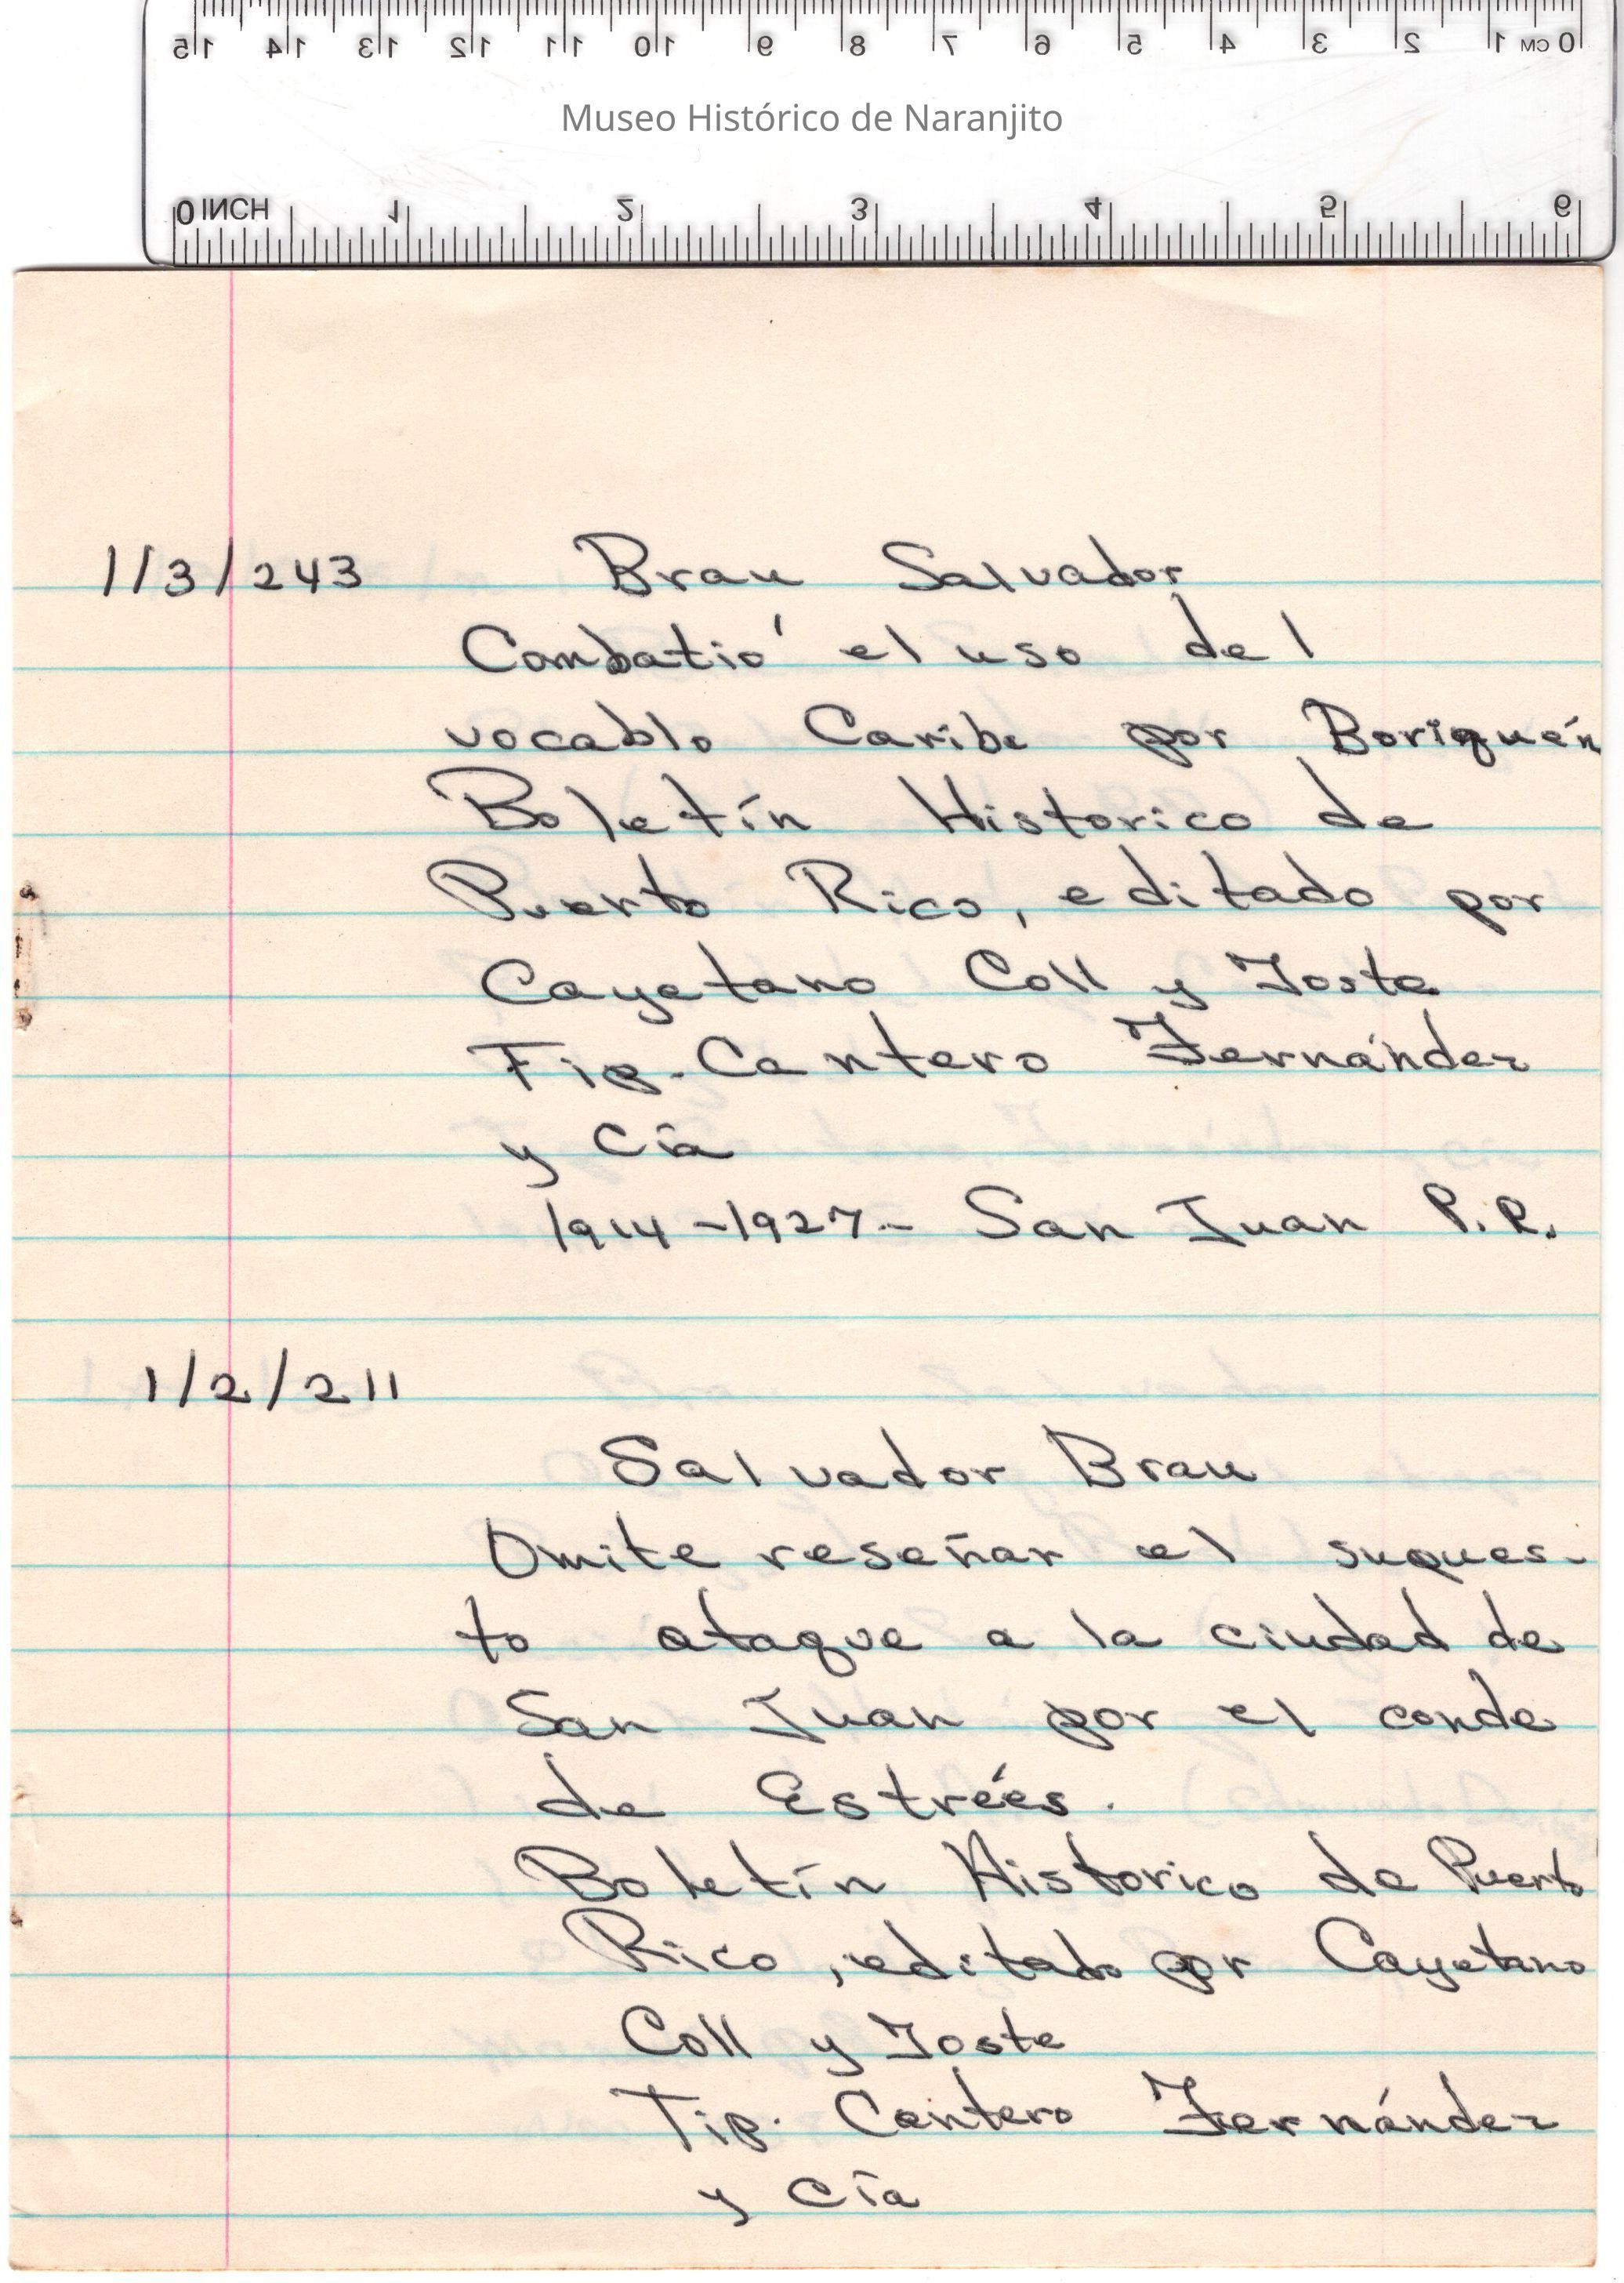 15 14 13 12 11 10 9 8 7 6 5 4 3 2 1 CM 0
Museo Histórico de Naranjito
0 INCH 1 2 3 4 5 6
1/3/243 Brau Salvador
Combatió el uso del
vocablo Caribe por Boriquén
Boletín Historico de
Puerto Rico, editado por
Cayetano Coll y Toste
Tip. Cantero Fernández
y Cía
1914-1927- San Juan P.R.
1/2/211
Salvador Brau
Omite reseñar el supues-
to ataque a la ciudad de
San Juan por el conde
de Estrées.
Boletín Historico de Puerto
Rico, editado por Cayetano
Coll y Toste
Tip. Cantero Fernández
y Cía